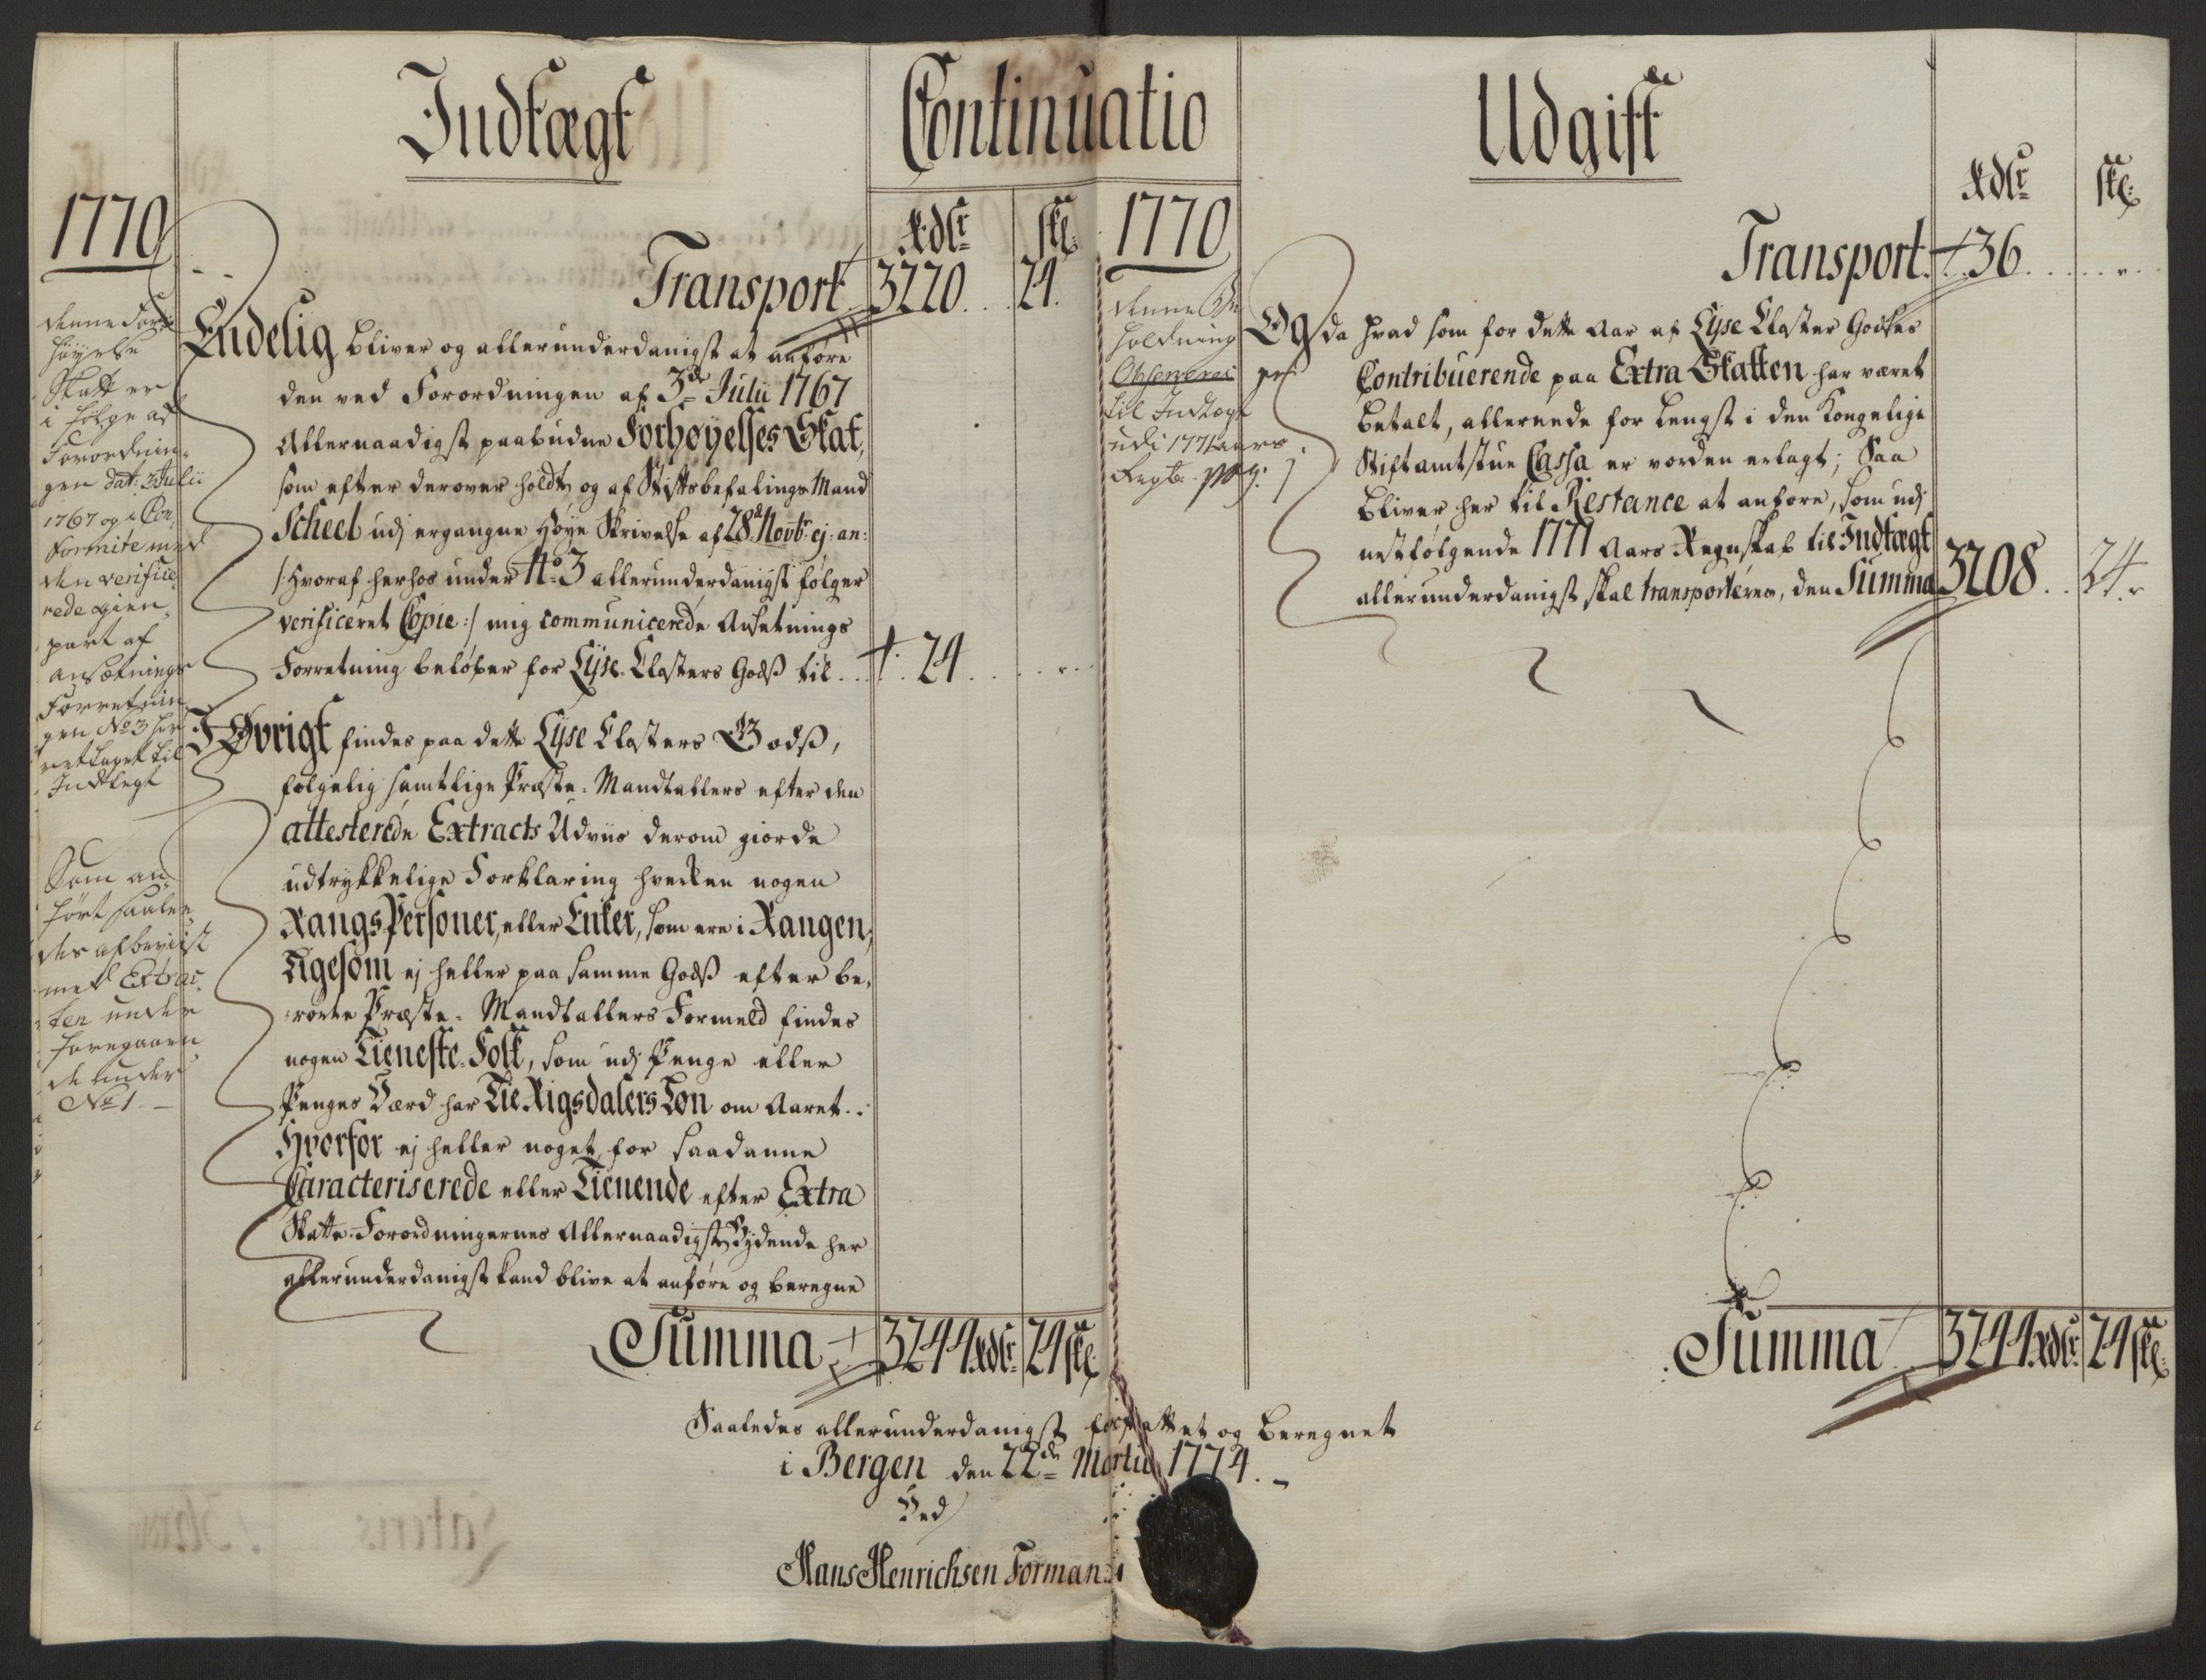 Indtægt
Continuatio
Udgift
1770
Rdlr
ske:
Transport 3220 .. 24.
Endelig bliver og allerunderdanigst at anføre
den ved Forordningen af 3de Julii 1767
Allernaadigst paabudne Forhøyelses Skat,
som efter derover holdte og af Stiftsbefalings Mand
Scheel udj ergangne Høye Skrivelse af 28de Novbr: ej: an:
/: Hvoraf herhos under No 3 allerunderdanigst følger
verificeret Copie :/ mig communicerede Ansetnings
Forretning beløber for Lyse Closters Godß til ... 24 ..
I Øvrigt findes paa dette Lyse Closters Godß,
følgelig samtlige Præste-Mandtallers efter den
attesterede Extracts Udviis derom giorde
udtrykkelige Forklaring hverken nogen
Rangs Personer, eller Enker, som ere i Rangen;
Ligesom ej heller paa samme Godß efter be-
rørte Præste-Mandtallers Formeld findes
nogen Tieneste-Folk, som udj Penge eller
Penges Værd har Tie Rigsdalers Løn om Aaret.:
Hvorfor ej heller noget for saadanne
Caracteriserede eller Tienende efter Extra
Skatte-Forordningernes Allernaadigste Bydende her
allerunderdanigst kand blive at anføre og beregne
Summa 3244 Rdlr: 24 ske:
denne For-
høyelse
Skatt er
i følge af
Forordnin-
gen dat: 3 Julii
1767 og i Con-
formite med
den verifice-
rede gien-
part af
ansætnings
Forretnin-
gen No 3 her
rettaget til
Indtegt
Som an-
ført saale-
des afbeviist
med Extrac-
ten under
foregaaen-
de under
No 1. —
1770
Rdlr
ske:
Transport .. 36 ....
Og da hvad som for dette Aar af Lyse Closter Godses
Contribuerende paa Extra Skatten har været
betalt, allerede for lengst i den Kongelige
Stiftamtstue Cassa er vorden erlagt; Saa
bliver her til Restance at anføre, som udj
nestfølgende 1771 Aars Regnskab til Indtægt
allerunderdanigst skal transporteres, den Summa 3208 .. 24
denne
holdning
Observeres
til Indtægt
udi 1771 aars
Regb:
Summa 3244 Rdlr: 24 ske:
Saaledes allerunderdanigst forfattet og beregnet
i Bergen den 22de Martii 1774. —
Ved
Hans Henrichsen Formann